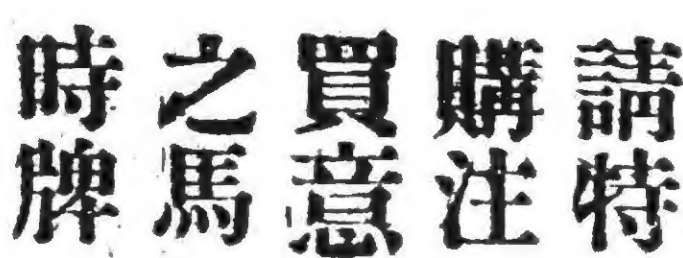 請購買之時
特注意馬牌